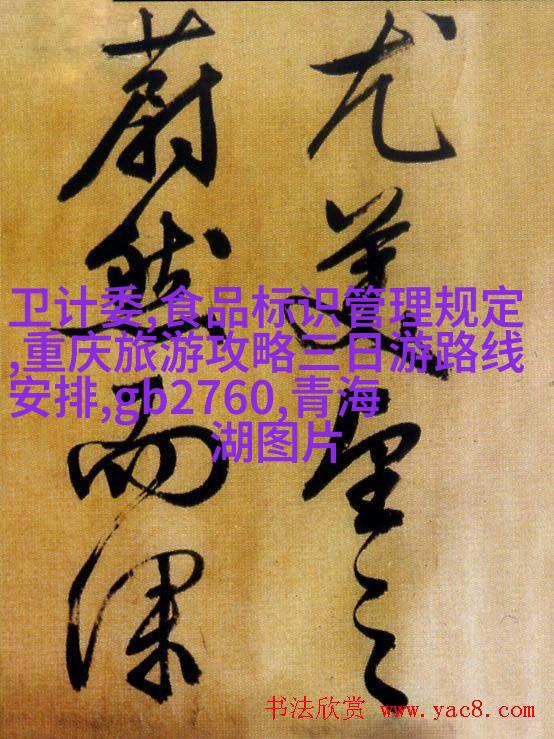 尤美望之
蔚然而深
卫计委,食品标识管理规定
,重庆旅游攻略三日游路线
安排,gb2760,青海
湖图片
书法欣赏 www.yac8.com